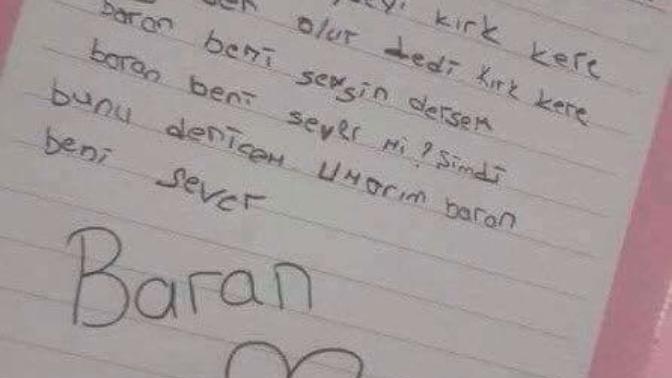 kırk kere
olur dedi kırk kere
baran beni sevsin dersem
baran beni sever mi? Şimdi
bunu denicem umarım baran
beni sever
Baran